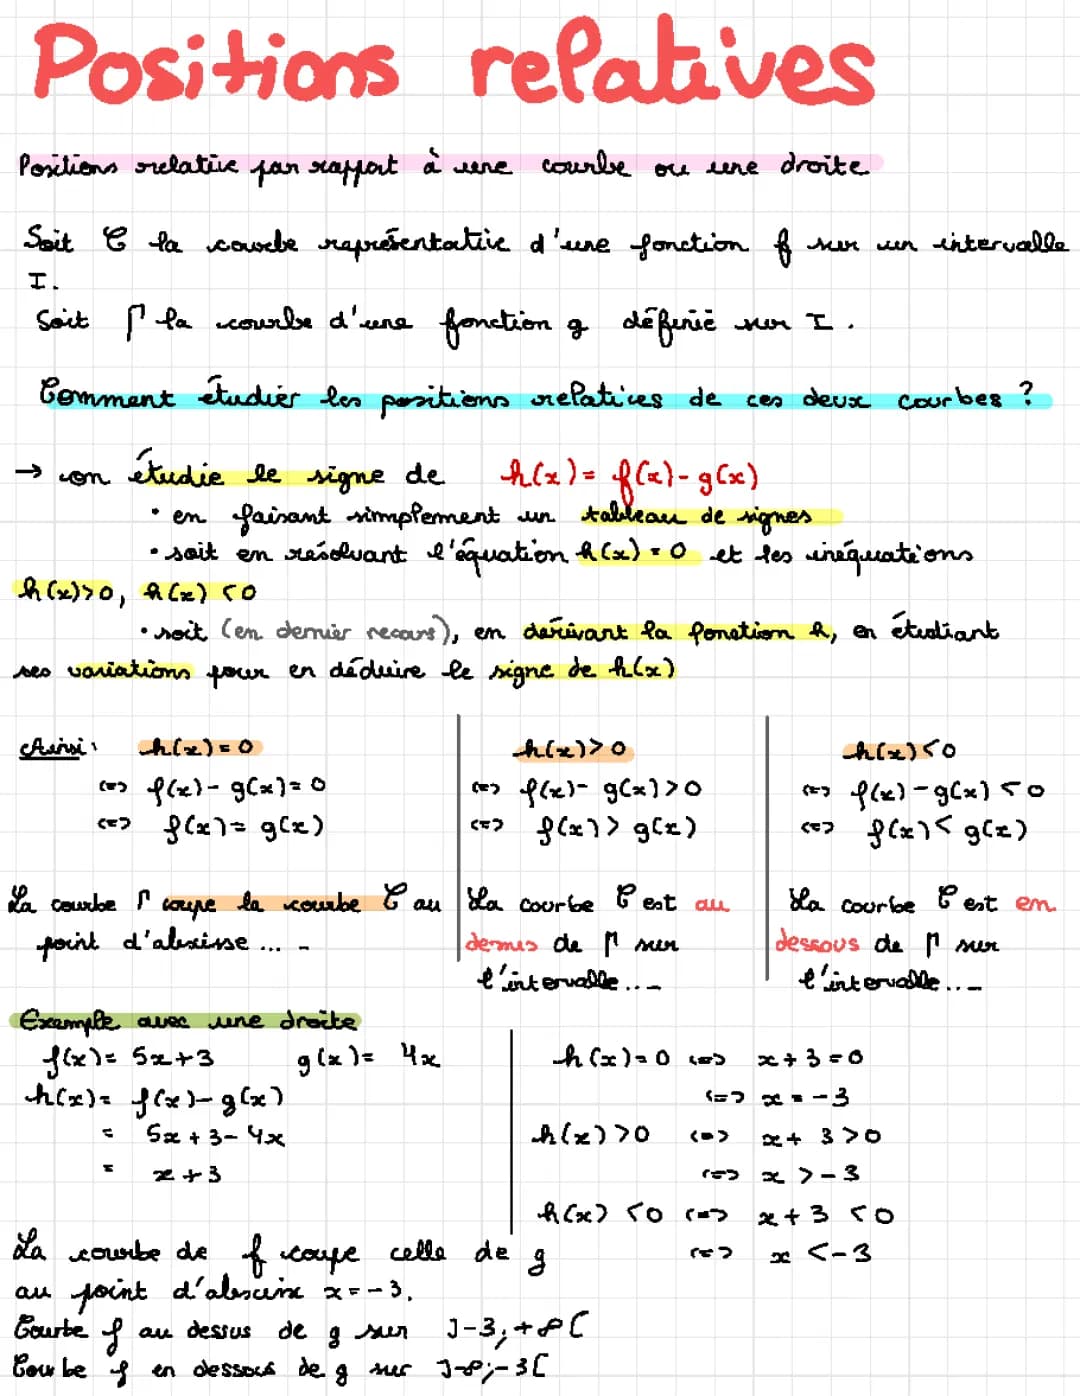 Positions relatives
Positions relative par rapport à une courbe ou une droite
Soit C la courbe représentative d'une fonction f sur un intervalle
I.
Soit Γ la courbe d'une fonction g définie sur I.
Comment étudier les positions relatives de ces deux courbes ?
→ on étudie le signe de h(x) = f(x) - g(x)
• en faisant simplement un tableau de signes
• soit en résolvant l'équation h(x) = 0 et les inéquations
h(x)>0, h(x)<0
• soit (en dernier recours), en dérivant la fonction h, en étudiant
ses variations pour en déduire le signe de h(x)
Ainsi: h(x) = 0
<=> f(x) - g(x) = 0
<=> f(x) = g(x)
La courbe Γ coupe la courbe C au
point d'abscisse ... -
h(x)>0
<=> f(x) - g(x)>0
<=> f(x) > g(x)
La courbe C est au
dessus de Γ sur
l'intervalle...-
h(x)<0
<=> f(x) - g(x) <0
<=> f(x) < g(x)
La courbe C est en
dessous de Γ sur
l'intervalle...-
Exemple avec une droite
f(x) = 5x+3 g(x) = 4x
h(x) = f(x) - g(x)
= 5x + 3 - 4x
= x + 3
h(x) = 0 <=> x + 3 = 0
<=> x = -3
h(x) >0 <=> x + 3 >0
<=> x > -3
h(x) <0 <=> x + 3 <0
<=> x < -3
La courbe de f coupe celle de g
au point d'abscisse x = -3.
Courbe f au dessus de g sur ]-3;+∞[
Courbe f en dessous de g sur ]-∞;-3[